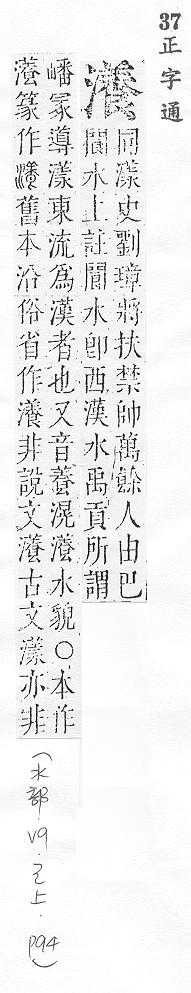 37 正字通
瀁
同漾史劉璋將扶禁帥萬餘人由巴
閬水上註閬水卽西漢水禹貢所謂
嶓冢導漾東流為漢者也又音養滉瀁水貌○本作
瀁篆作舊本沿俗省作瀁非說文瀁古文漾亦非
(水部 V9.巳上.P94)